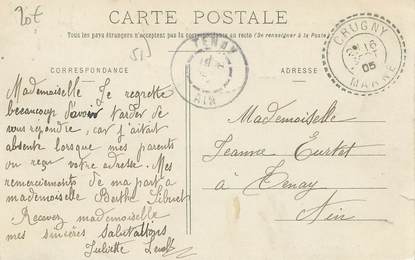 CARTE POSTALE
Tous les pays étrangers n'acceptent pas la correspondance au recto (Se renseigner à la Poste)
CORRESPONDANCE
ADRESSE
TENAY
AIN
CRUGNY
16
05
MARNE
Mademoiselle Je regrette
beaucoup d'avoir tarder de
vous repondre, car j'aitait
absente lorsque mes parents
on reçu votre adresse. Mes
remerciments de ma part a
mademoiselle Berthe
Recevez mademoiselle
mes sincères Salutations
Juliette
Mademoiselle
Jeanne
à Tenay
Ain